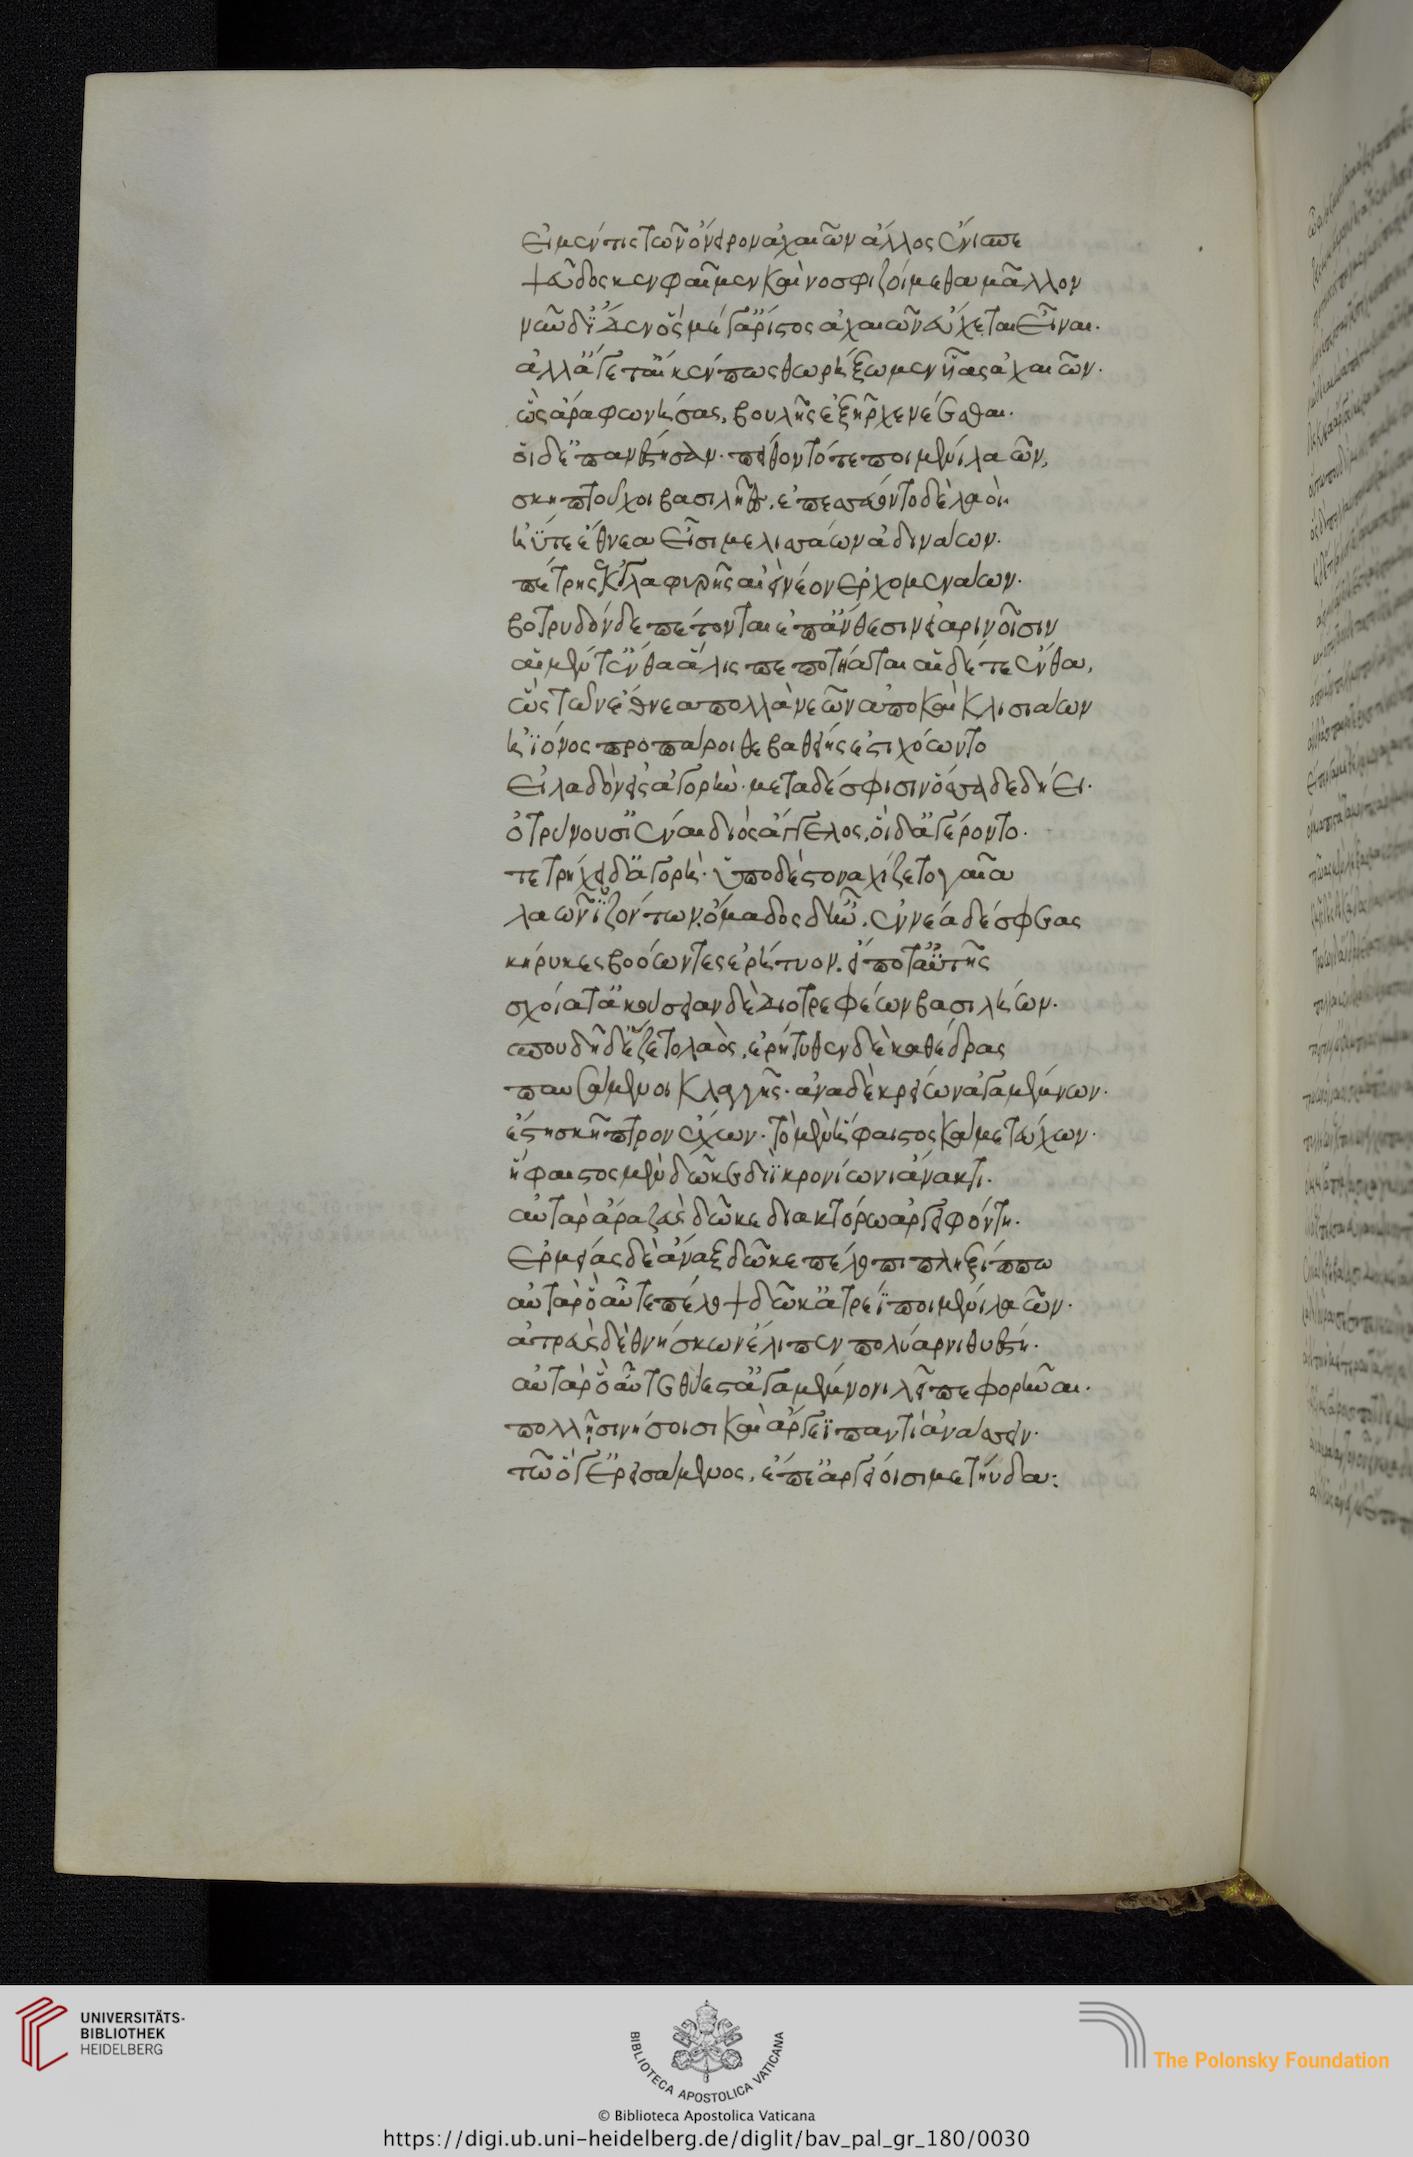 εἰ μέν τις τῶν ὄνειρον ἀχαιῶν ἄλλος ἔνισπε
ψεῦδος κεν φαῖμεν καὶ νοσφιζοίμεθα μᾶλλον
νῦν δ' ἴδεν ὃς μέγ' ἄριστος ἀχαιῶν εὔχεται εἶναι.
ἀλλ' ἄγετ' αἴ κέν πως θωρήξωμεν υἷας ἀχαιῶν.
ὣς ἄρα φωνήσας, βουλῆς ἐξῆρχε νέεσθαι.
οἱ δ' ἐπανέστησαν. πείθοντό τε ποιμένι λαῶν,
σκηπτοῦχοι βασιλῆες. ἐπεσσεύοντο δὲ λαοὶ.
ἠΰτε ἔθνεα εἶσι μελισσάων ἀδινάων.
πέτρης ἐκ γλαφυρῆς αἰεὶ νέον ἐρχομενάων.
βοτρυδὸν δὲ πέτονται ἐπ' ἄνθεσιν εἰαρινοῖσιν
αἱ μέν τ' ἔνθα ἅλις πεποτήαται αἱ δέ τε ἔνθα,
ὣς τῶν ἔθνεα πολλὰ νεῶν ἄπο καὶ κλισιάων
ἠϊόνος προπάροιθε βαθείης ἐστιχόωντο
εἰλαδὸν εἰς ἀγορήν. μετὰ δέ σφισιν ὄσσα δεδήει.
ὀτρύνουσ' ἰέναι διὸς ἄγγελος, οἱ δ' ἀγέροντο.
τετρήχει δ' ἀγορή. ὑπὸ δὲ στοναχίζετο γαῖα
λαῶν ἱζόντων. ὅμαδος δ' ἦν. ἐννέα δέ σφεας
κήρυκες βοόωντες ἐρήτυον. εἴποτ' ἀϋτῆς
σχοίατ' ἀκούσειαν δὲ διοτρεφέων βασιλήων.
σπουδῇ δ' ἕζετο λαὸς, ἐρήτυθεν δὲ καθέδρας
παυσάμενοι κλαγγῆς. ἀνὰ δὲ κρείων ἀγαμέμνων.
ἔστη σκῆπτρον ἔχων. τὸ μὲν ἥφαιστος κάμε τεύχων.
ἥφαιστος μὲν δῶκε διῒ κρονίωνι ἄνακτι.
αὐτὰρ ἄρα ζεὺς δῶκε διακτόρω ἀργειφόντη.
ἑρμείας δὲ ἄναξ δῶκε πέλοπι πληξίππω
αὐτὰρ ὃ αὖτε πέλοψ δῶκ' ἀτρέϊ ποιμένι λαῶν.
ἀτρεὺς δὲ θνήσκων ἔλιπεν πολύαρνι θυέστη.
αὐτὰρ ὃ αὖτε θυέστ' ἀγαμέμνονι λεῖπε φορῆναι.
πολλῆσιν νήσοισι καὶ ἄργεϊ παντὶ ἀνάσσειν.
τῶ ὅγ' ἐρεισάμενος, ἔπε' ἀργείοισι μετηύδα:
UNIVERSITÄTS-
BIBLIOTHEK
HEIDELBERG
BIBLIOTECA APOSTOLICA VATICANA
The Polonsky Foundation
© Biblioteca Apostolica Vaticana
https://digi.ub.uni-heidelberg.de/diglit/bav_pal_gr_180/0030